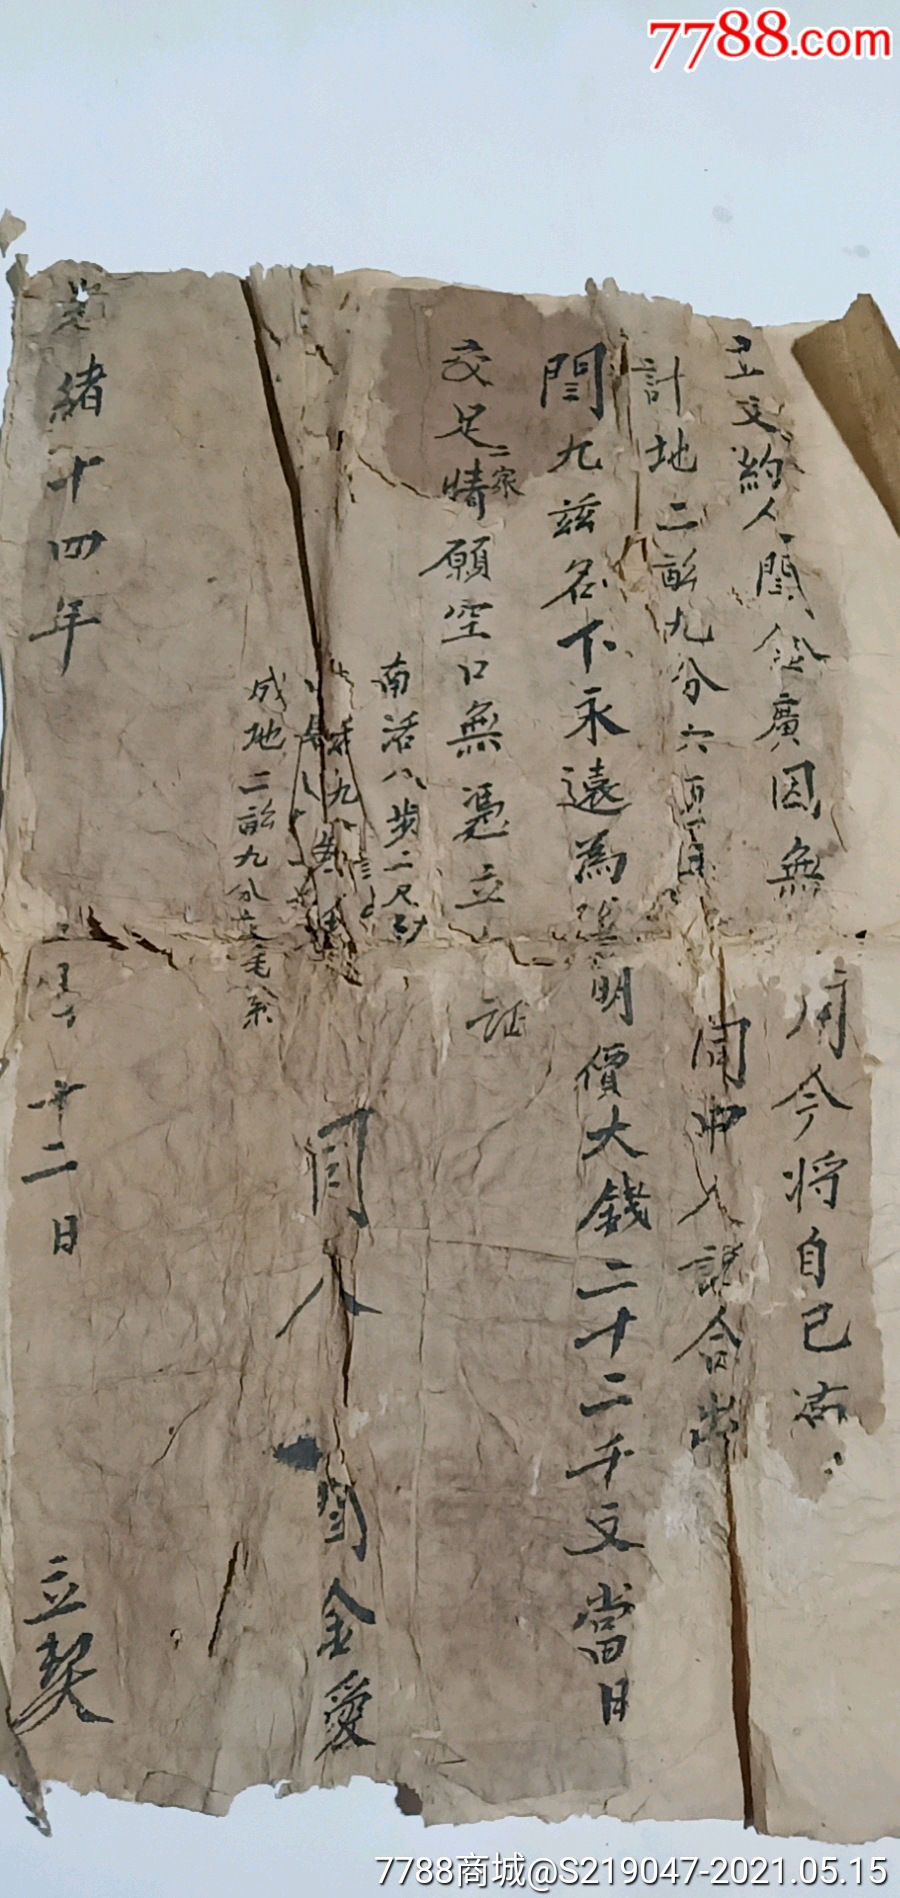 7788.com
立文約人閆金廣因無 用今將自己
計地二畝九分六 同中人說合
閆九茲名下永遠為業明價大錢二十二千文當日
交足二家情願空口無憑立 証
南活八步二尺
九
成地二畝九分 毛余
同人 閆金愛
光緒十四年 十二日 立契
7788商城@S219047-2021.05.15